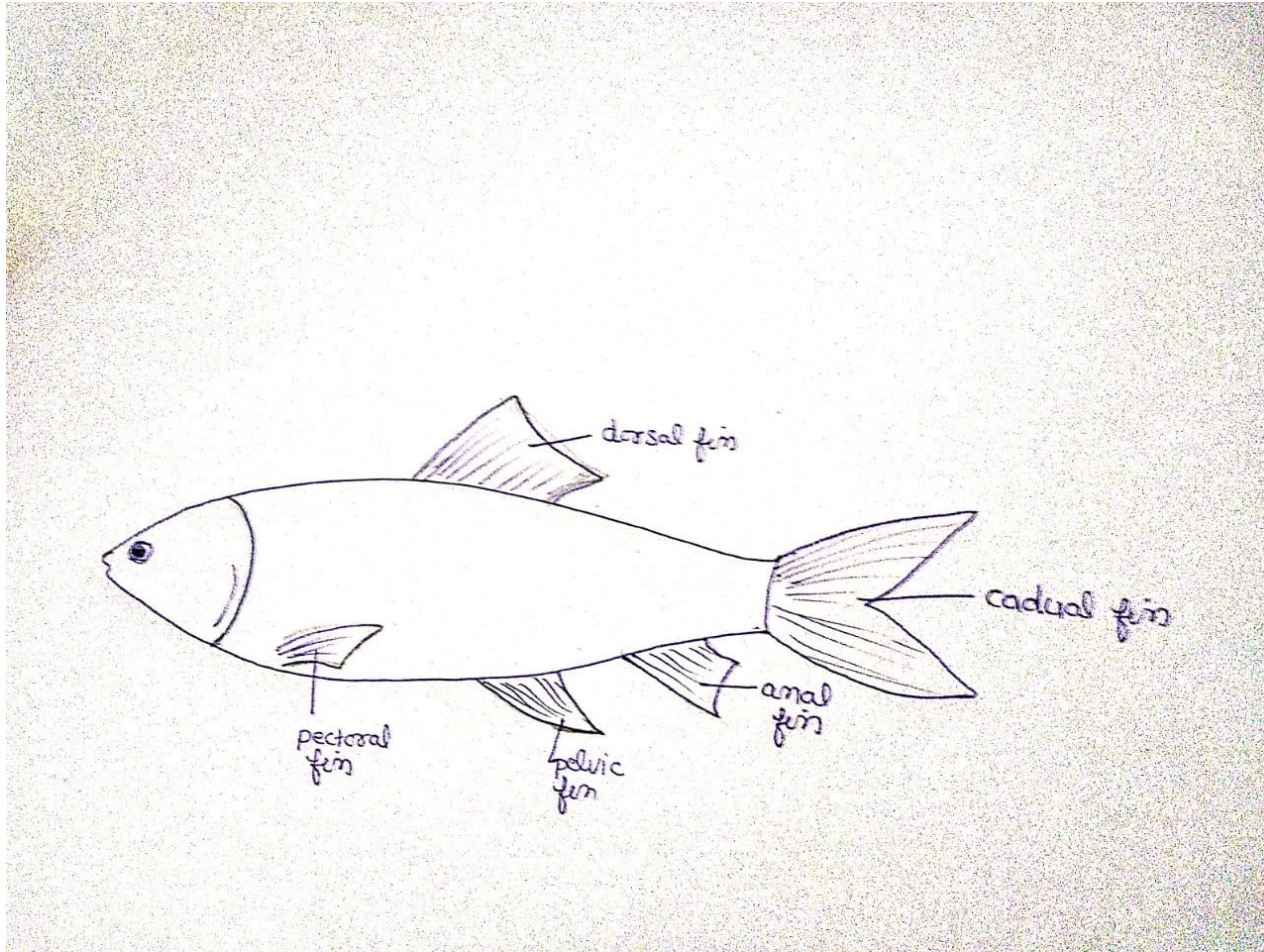 dorsal fin
cadual fin
anal
fin
pectoral
fin
pelvic
fin